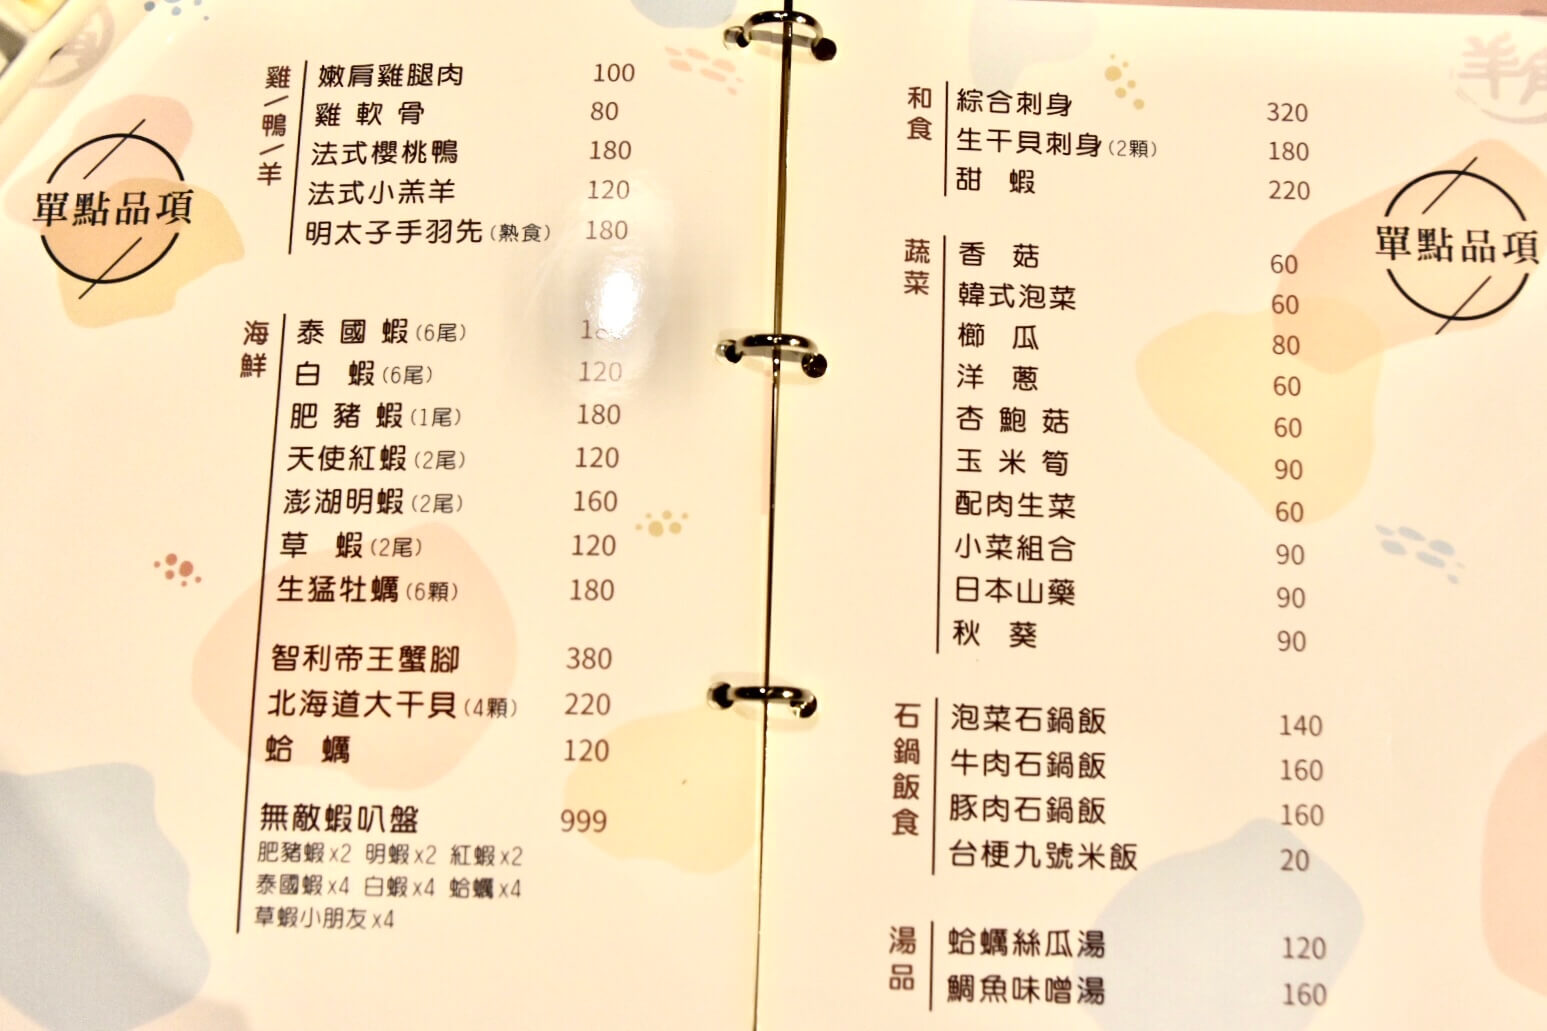 單點品項
雞/鴨/羊
嫩肩雞腿肉 100
雞軟骨 80
法式櫻桃鴨 180
法式小羔羊 120
明太子手羽先(熟食) 180
海鮮
泰國蝦(6尾)
白蝦(6尾) 120
肥豬蝦(1尾) 180
天使紅蝦(2尾) 120
澎湖明蝦(2尾) 160
草蝦(2尾) 120
生猛牡蠣(6顆) 180
智利帝王蟹腳 380
北海道大干貝(4顆) 220
蛤蠣 120
無敵蝦叭盤 999
肥豬蝦x2 明蝦x2 紅蝦x2
泰國蝦x4 白蝦x4 蛤蠣x4
草蝦小朋友x4
單點品項
和食
綜合刺身 320
生干貝刺身(2顆) 180
甜蝦 220
蔬菜
香菇 60
韓式泡菜 60
櫛瓜 80
洋蔥 60
杏鮑菇 60
玉米筍 90
配肉生菜 60
小菜組合 90
日本山藥 90
秋葵 90
石鍋飯食
泡菜石鍋飯 140
牛肉石鍋飯 160
豚肉石鍋飯 160
台梗九號米飯 20
湯品
蛤蠣絲瓜湯 120
鯛魚味噌湯 160